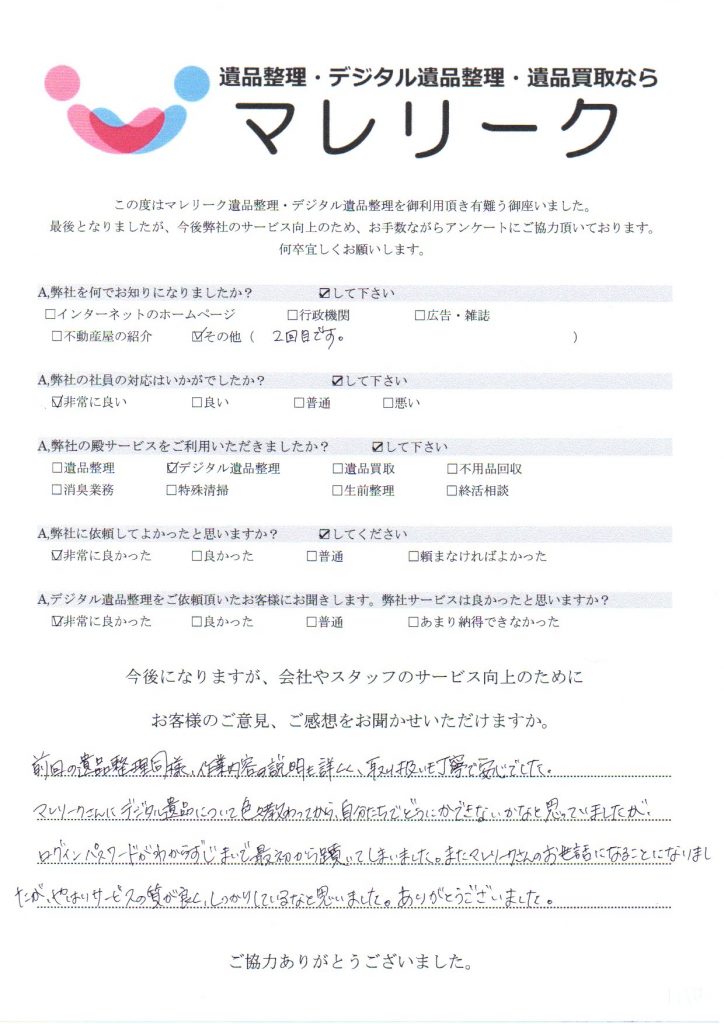 遺品整理・デジタル遺品整理・遺品買取なら
マレリーク
この度はマレリーク遺品整理・デジタル遺品整理を御利用頂き有難う御座いました。
最後となりましたが、今後弊社のサービス向上のため、お手数ながらアンケートにご協力頂いております。
何卒宜しくお願いします。
A,弊社を何でお知りになりましたか？ ☑して下さい
□インターネットのホームページ □行政機関 □広告・雑誌
□不動産屋の紹介 ☑その他（ 2回目です。 ）
A,弊社の社員の対応はいかがでしたか？ ☑して下さい
☑非常に良い □良い □普通 □悪い
A,弊社の殿サービスをご利用いただきましたか？ ☑して下さい
□遺品整理 ☑デジタル遺品整理 □遺品買取 □不用品回収
□消臭業務 □特殊清掃 □生前整理 □終活相談
A,弊社に依頼してよかったと思いますか？ ☑してください
☑非常に良かった □良かった □普通 □頼まなければよかった
A,デジタル遺品整理をご依頼頂いたお客様にお聞きします。弊社サービスは良かったと思いますか？
☑非常に良かった □良かった □普通 □あまり納得できなかった
今後になりますが、会社やスタッフのサービス向上のために
お客様のご意見、ご感想をお聞かせいただけますか。
前回の遺品整理同様、作業内容の説明も詳しく、取り扱いも丁寧で安心でした。
マレリークさんにデジタル遺品について色々教わってから、自分たちでどうにかできないかなと思っていましたが、
ログインパスワードがわからずじまいで最初から躓いてしまいました。またマレリークさんのお世話になることになりまし
たが、やはりサービスの質が良く、しっかりしているなと思いました。ありがとうございました。
ご協力ありがとうございました。